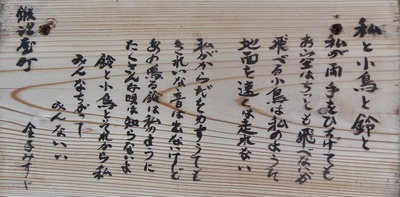 私と小鳥と鈴と
私が両手をひろげても
お空はちっとも飛べないが
飛べる小鳥は私のように
地面を速くは走れない
私がからだをゆすっても
きれいな音は出ないけど
あの鳴る鈴は私のように
たくさんな唄は知らないよ
鈴と小鳥とそれから私
みんなちがって
みんないい
金子みすゞ
鍛冶屋町